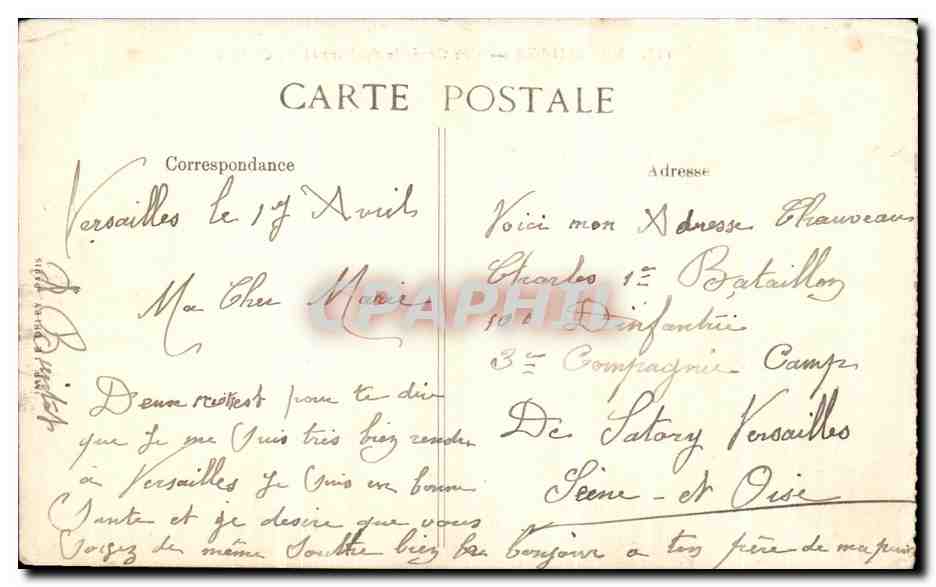 CARTE POSTALE
Correspondance
Versailles le 17 Avril
Ma Cher Marie
Deux mots pour te dire
que Je me suis très biez rendu
à Versailles Je suis en bonne
Sante et je desire que vous
Soigez de même bien bonjour a ton père de ma
A Bientot
Adresse
Voici mon Adresse Chauveau
Charles 1er Bataillon
D'infantrie
3e Compagnie Camp
De Satory Versailles
Seine et Oise
CPAPHIL